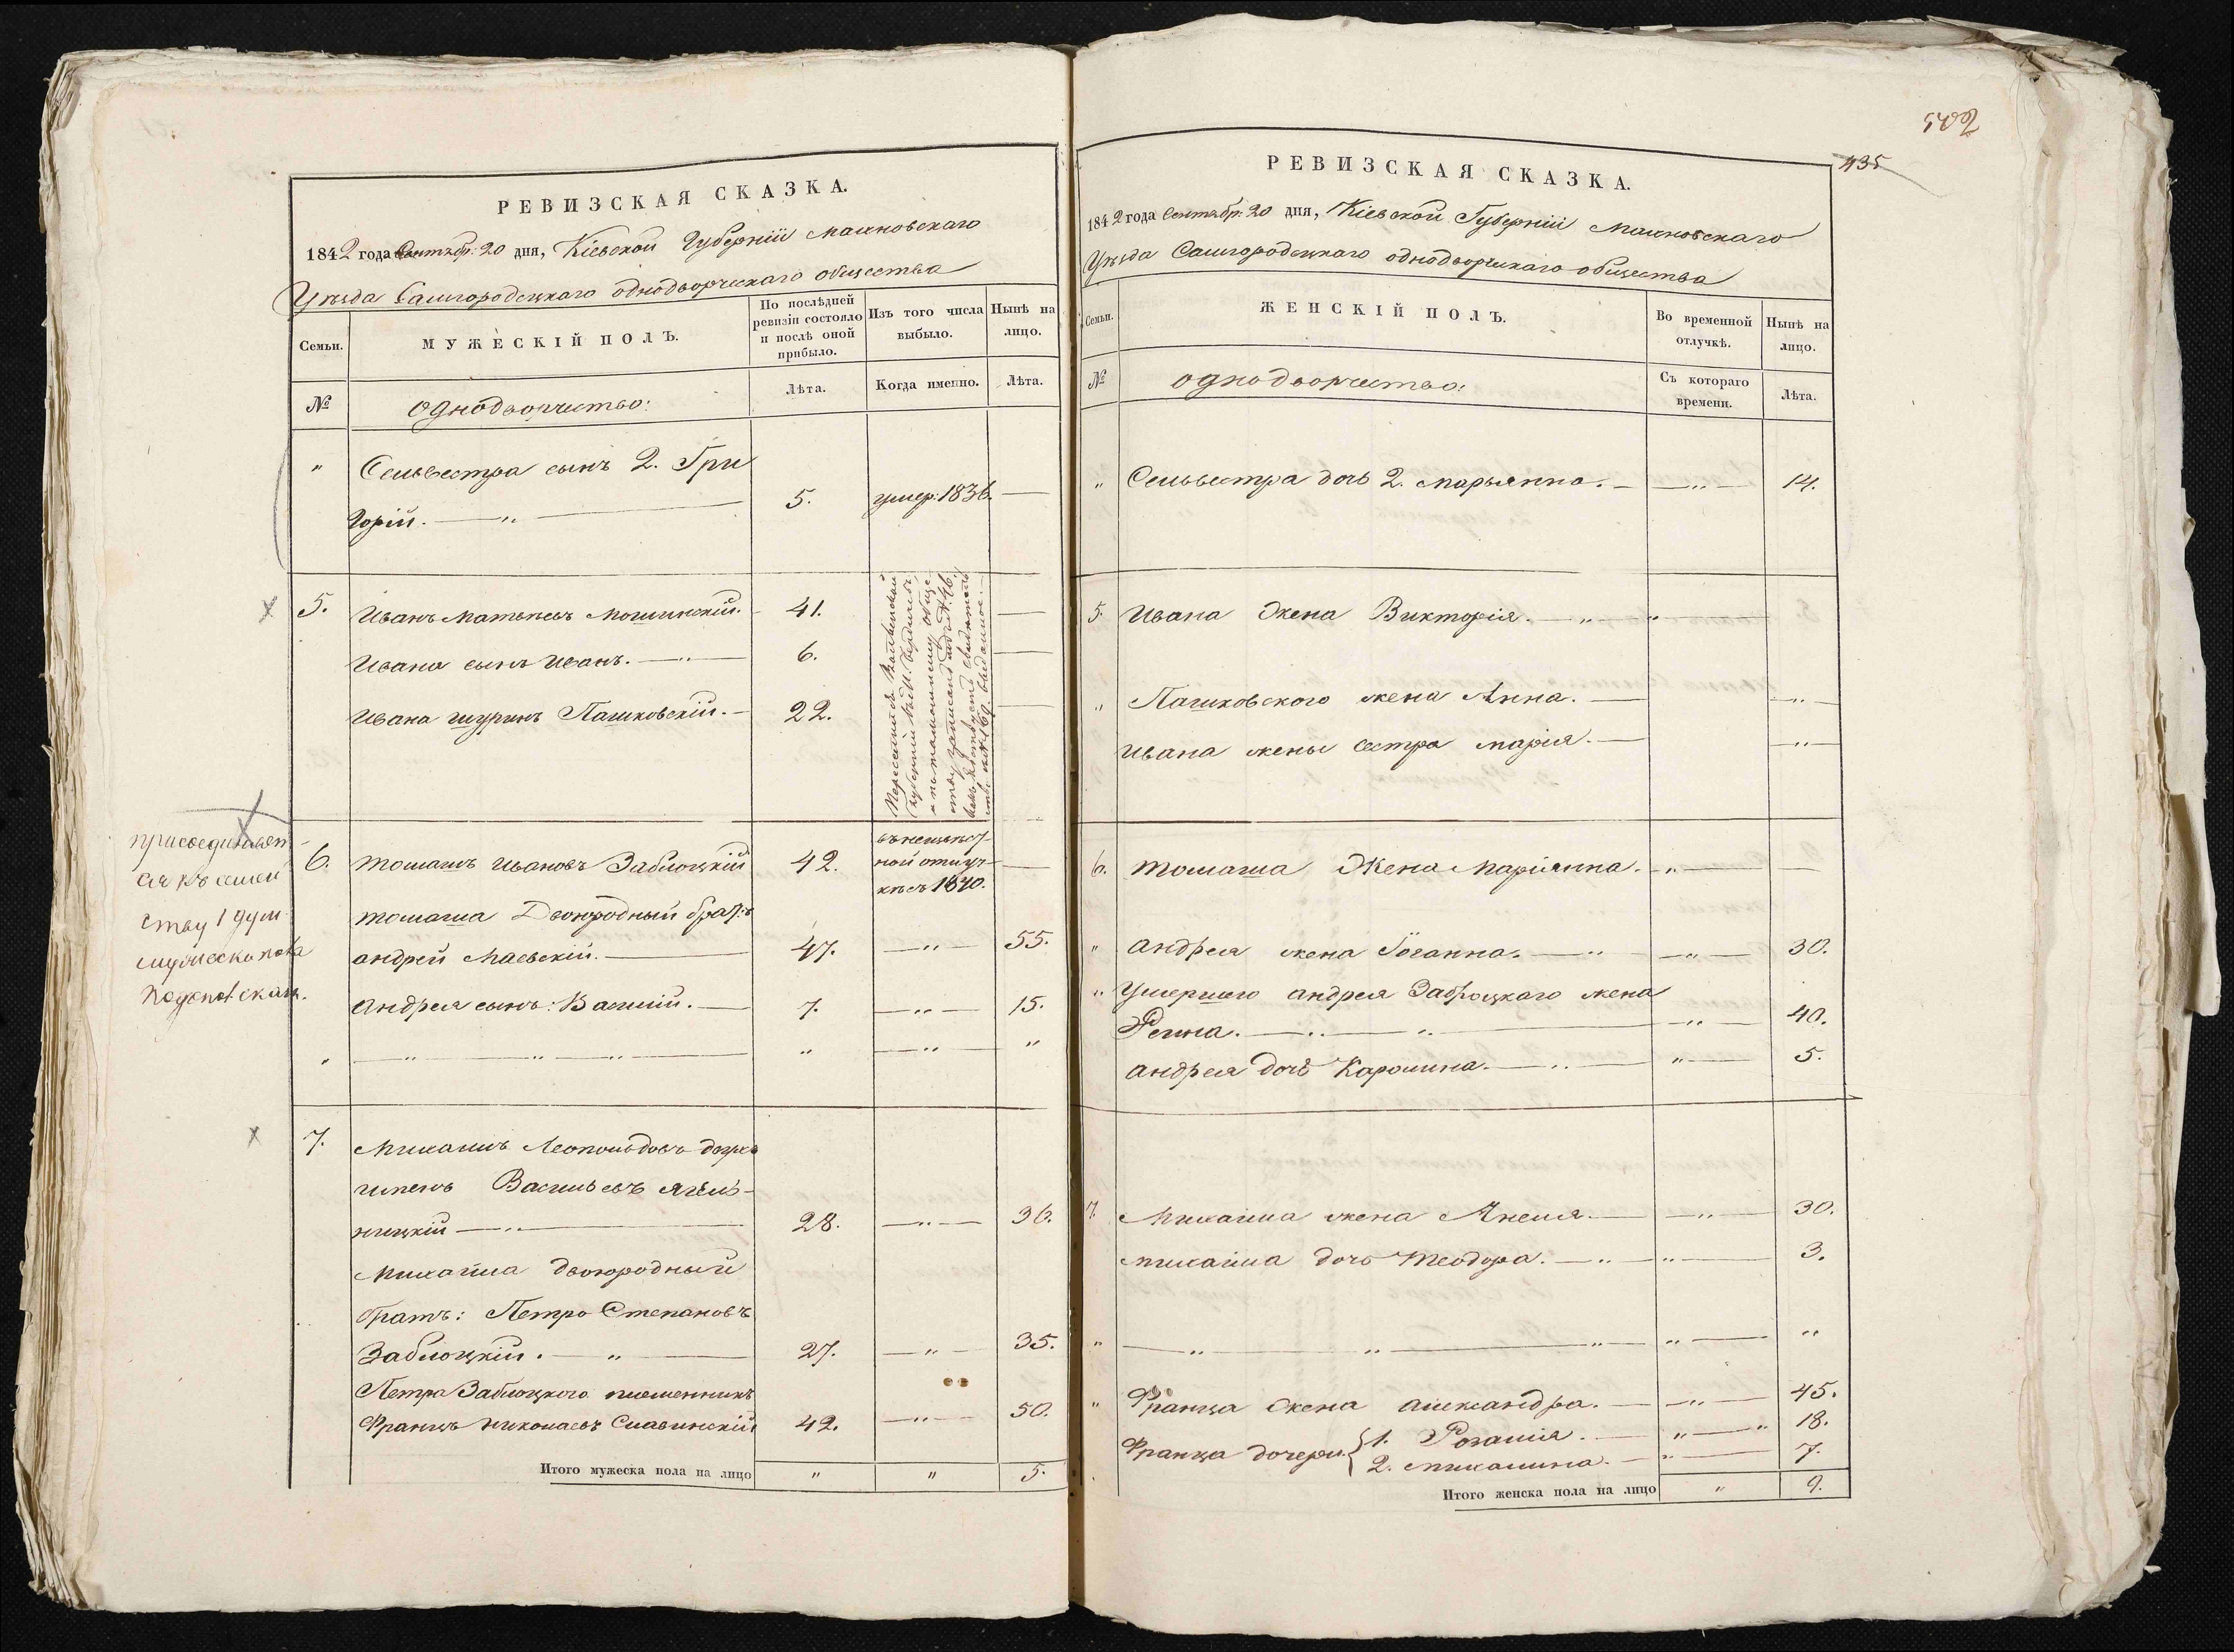 РЕВИЗСКАЯ СКАЗКА.
1842 года Сентябр: 20 дня, Кіевской Губерніи Махновскаго
Уѣзда Самгородецкаго однодворческаго общества
Семьи.
МУЖЕСКІЙ ПОЛЪ.
По послѣдней ревизіи состояло и послѣ оной прибыло.
Изъ того числа выбыло.
Нынѣ на лицо.
№
однодворчество:
Лѣта.
Когда именно.
Лѣта.
" Сельвестра сынъ 2. Гри
горій. — " — 5. умер: 1836. —
5. Иванъ Матвѣевъ Мошинскій. 41. —
Ивана сынъ Иванъ. — " — 6. —
Ивана шуринъ Пашковскій. — 22. —
Губерніи
присоединяет
ся къ семей
ству 1 душ
мужеска пола
6. Томашъ Ивановъ Заблоцкій 42. —
въ неизвѣст-
ной отлуч-
кѣ съ 1840.
Томаша Двоюродный братъ
андрей Маевскій. — 47. — " — 55.
Андрея сынъ: Василий. — 7. — " — 15.
" — " — " — " — " — " — "
7. Михаилъ Леопольдовъ
Васильевъ Ягель-
ницкій — " — 28. — " — 36.
Михаила двоюродный
братъ: Петро Степановъ
Заблоцкій. — " — 27. — " — 35.
Петра Заблоцкого племенникъ
Францъ Николаевъ Славинскій 42. — " — 50.
Итого мужеска пола на лицо " " 5.
435
РЕВИЗСКАЯ СКАЗКА.
1842 года Сентябр: 20 дня, Кіевской Губерніи Махновскаго
Уѣзда Самгородецкаго однодворческаго общества
Семьи.
ЖЕНСКІЙ ПОЛЪ.
Во временной отлучкѣ.
Нынѣ на лицо.
№
однодворчество:
Съ котораго времени.
Лѣта.
" Сельвестра дочь 2. Марьянна. — — " — 14.
5. Ивана Жена Викторія. — " — " —
" Пашковского жена Анна. — — " —
Ивана жены сестра Марія. — — " —
6. Томаша Жена Маріянна. — " — —
" Андрея жена Іоганна. — " — — " — 30.
" Умершего андрея Заброцкаго жена
Регина. — " — " — — " — 40.
андрея дочь Каролина. — " — " — 5.
7. Михаила жена Анеля. — — " — 30.
Михаила дочь Теодора. — " — " — 3.
" — " — " — " — " — "
" Франца жена Александра. — — " — 45.
Франца дочери. { 1. Розалія. — " — " 18.
2. Михалина. — " — 7.
Итого женска пола на лицо " 9.